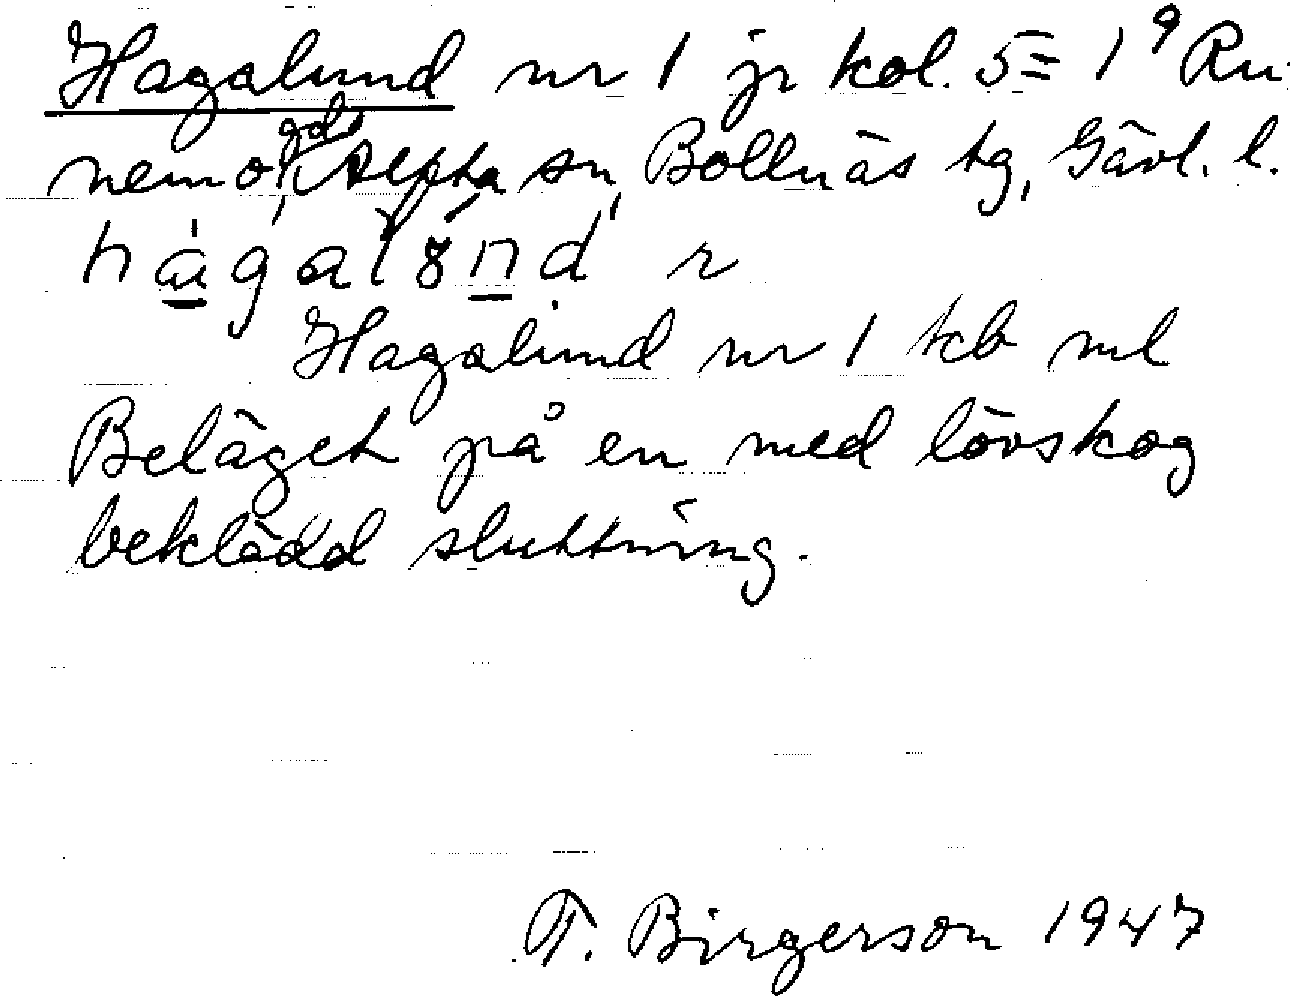 Hagalund nr 1 jr kol. 5 = 1⁹ Ru-
nemo gds Alfta sn, Bollnäs tg, Gävl. l.
hagalund r
Hagalund nr 1 tkb ml
Beläget på en med lövskog
beklädd sluttning.
T. Birgerson 1947